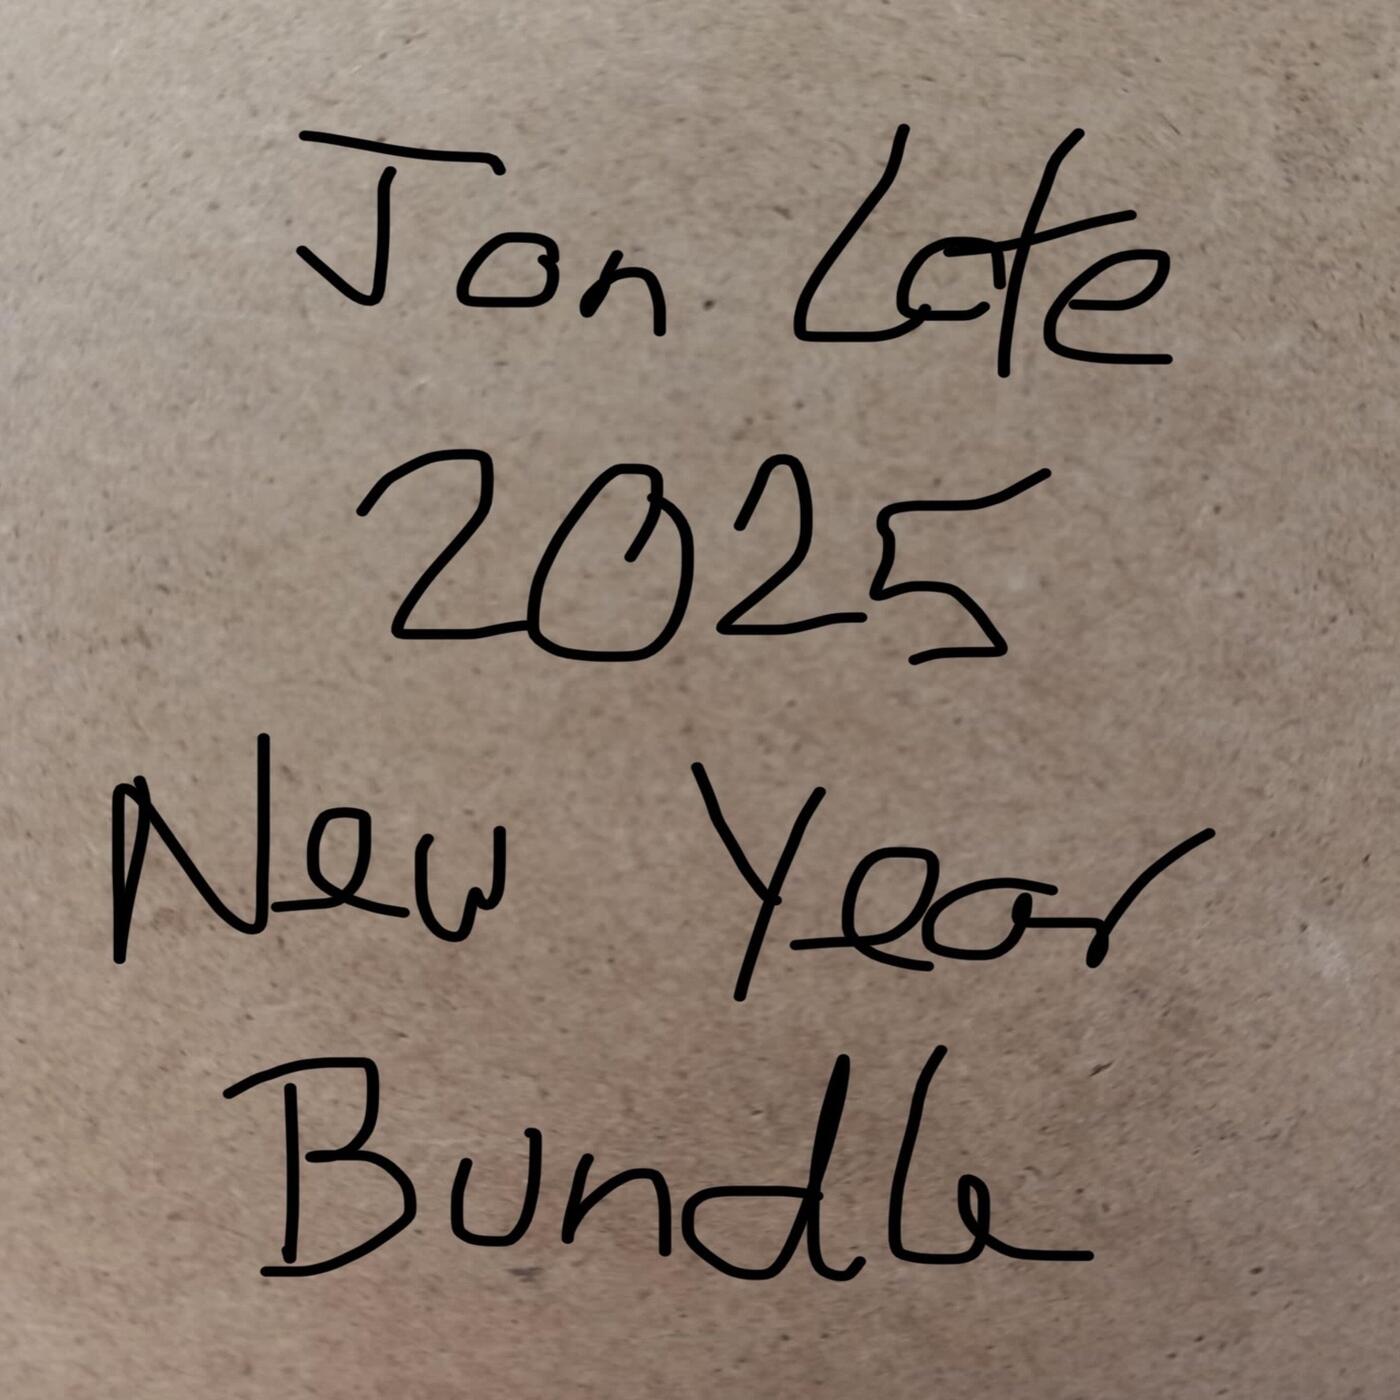 Jon Late
2025
New Year
Bundle